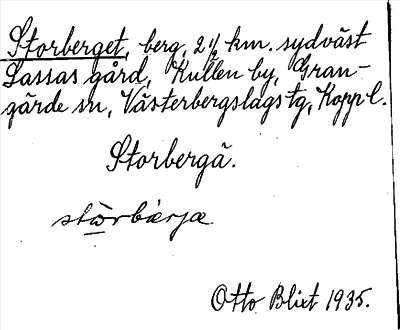 Storberget, berg, 2½ km. sydväst
Lassas gård, Kullen by, Gran-
gärde sn, Västerbergslags tg, Kopp l.
Storbergä.
stòrbærja
Otto Blixt 1935.